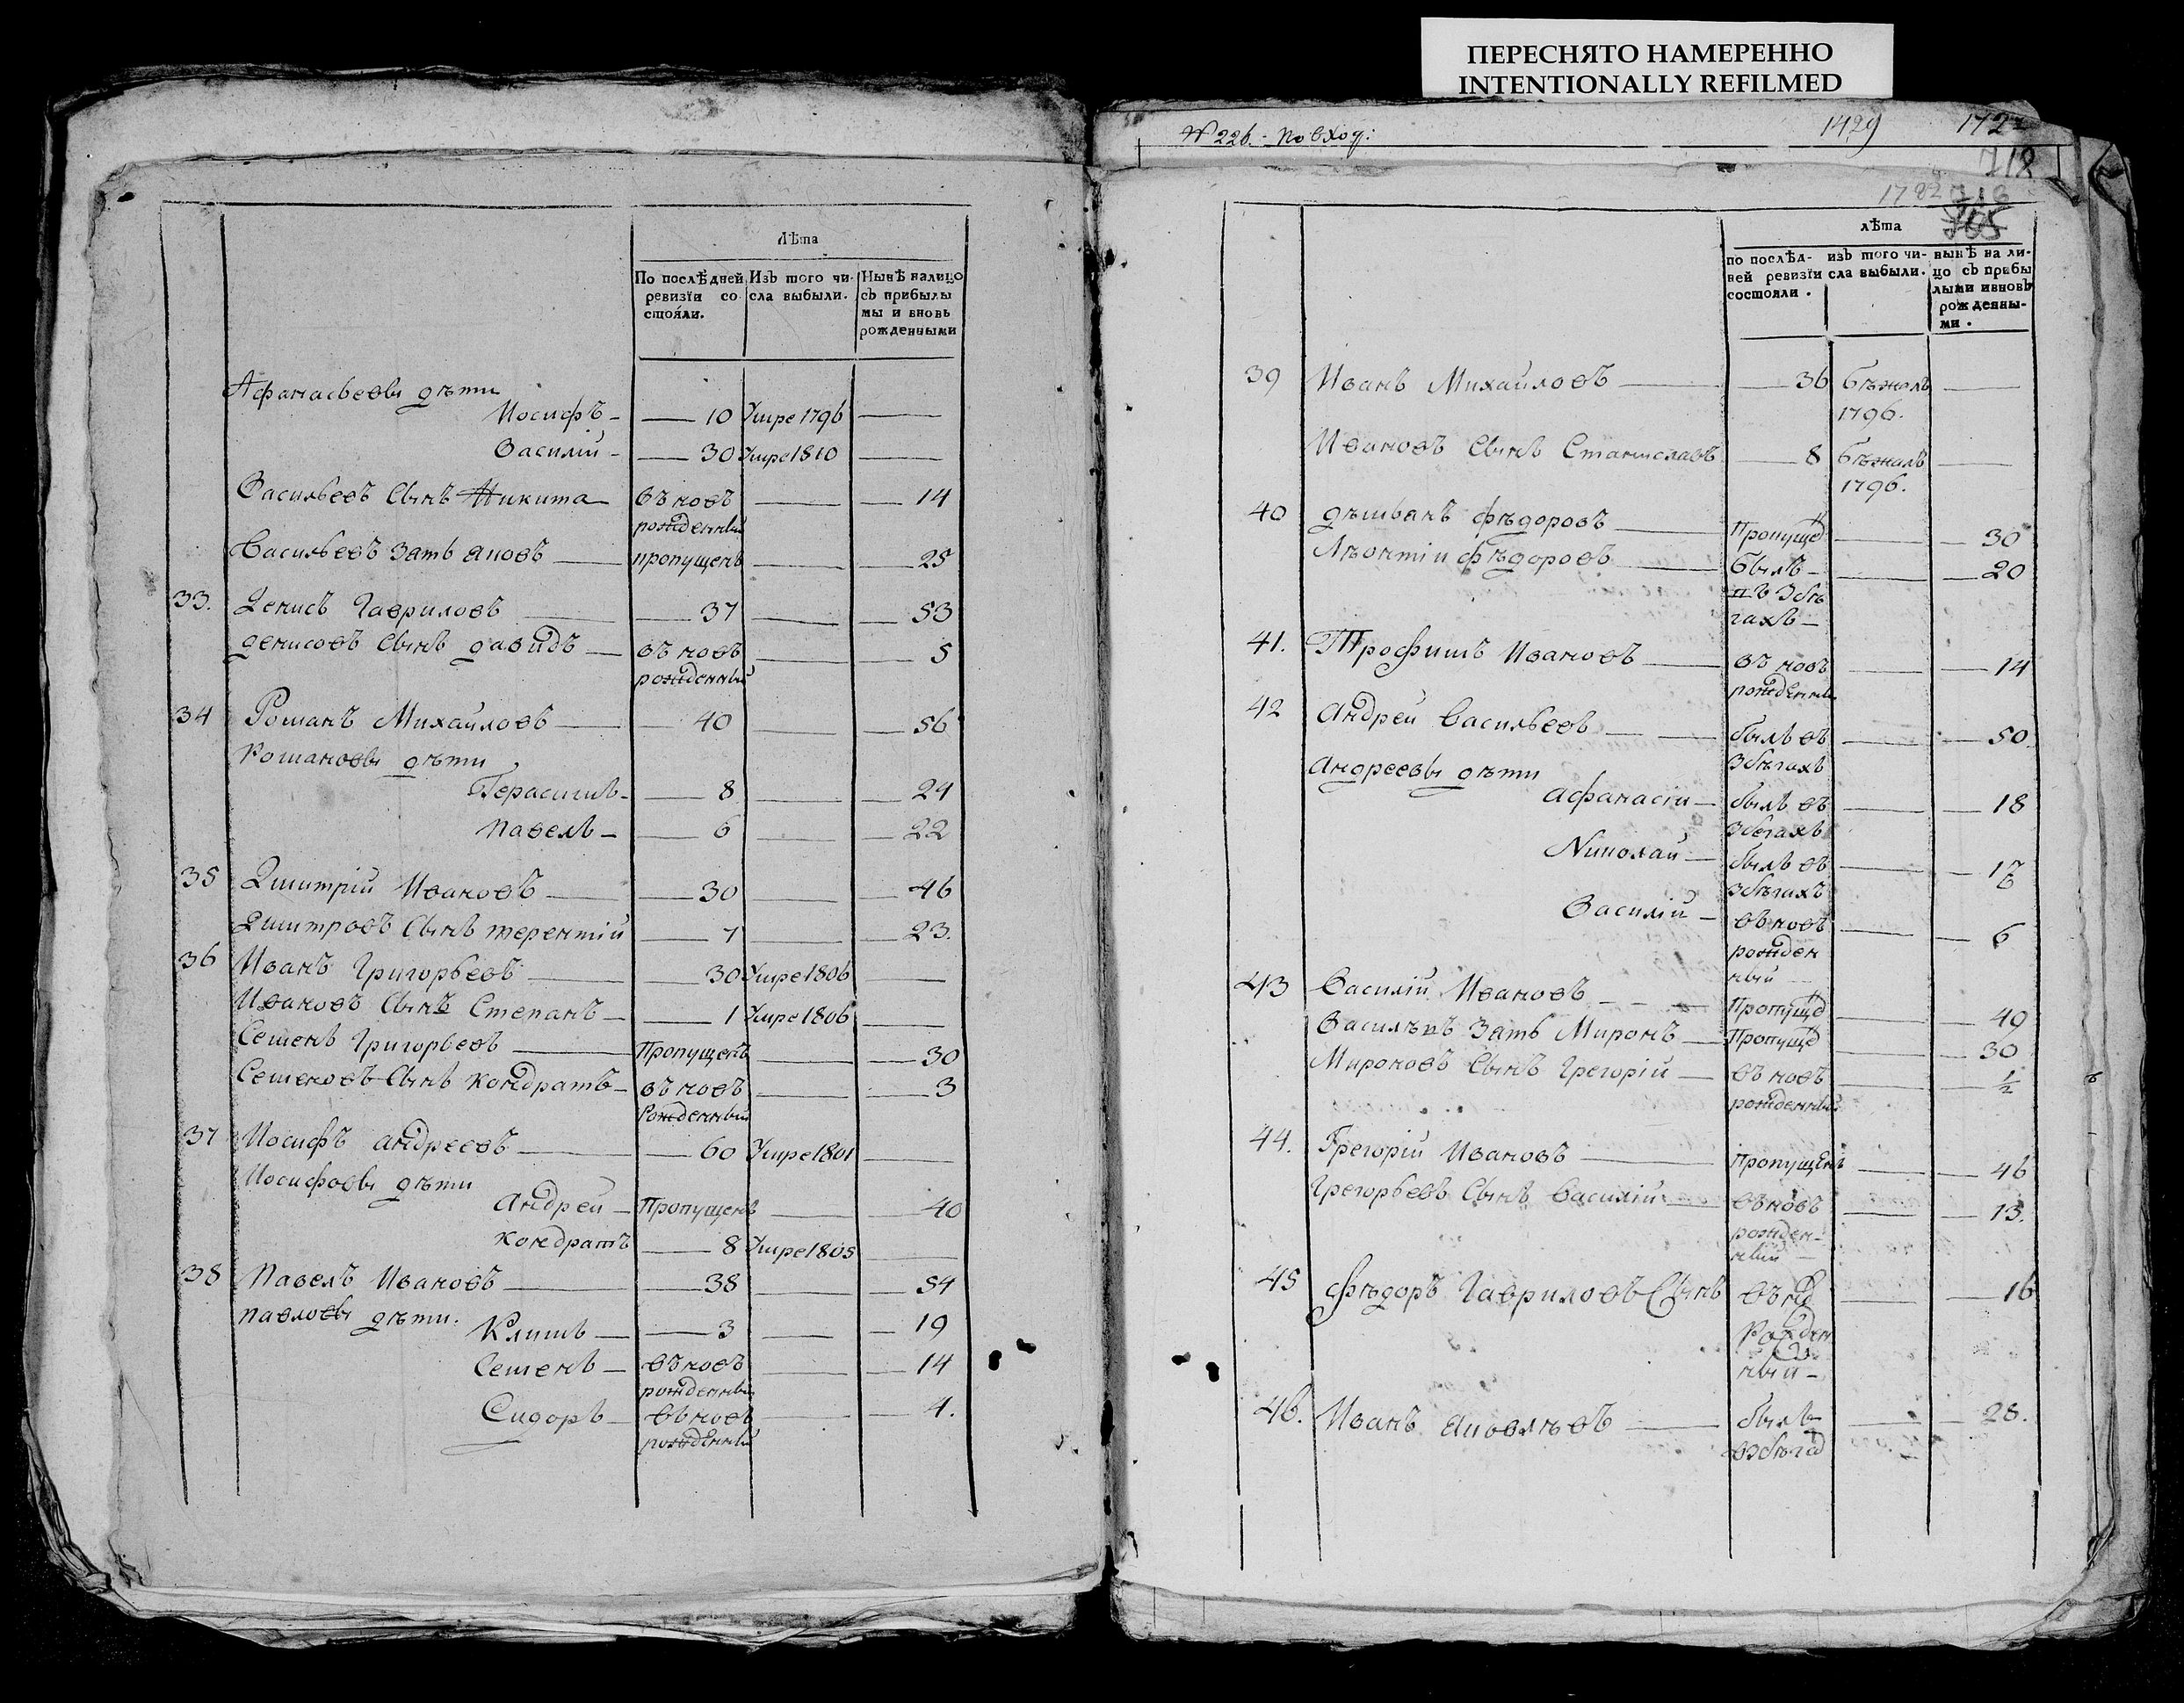 ПЕРЕСНЯТО НАМЕРЕННО
INTENTIONALLY REFILMED
№ 226. по вход:
1429
718
Лѣта
По послѣдней ревизїи состояли.
Изъ того числа выбыли.
Нынѣ налицо съ прибылы мы и вновь рожденными
Афанасьевы дѣти
Иосифъ — 10 Умре 1796 —
Василий — 30 Умре 1810 —
Васильевъ Сынъ Никита вновъ — 14
рожденный
Васильевъ Зать Яковъ — пропущенъ — 25
33. Денисъ Гавриловъ — 37 — 53
Денисовъ Сынъ давидъ — въновъ — 5
рожденный
34 Романъ Михайловъ — 40 — 56
Романовы дѣти
Герасимъ — 8 — 24
Павелъ — 6 — 22
35 Дмитрій Ивановъ — 30 — 46
Дмитровъ Сынъ терентій — 7 — 23.
36 Иванъ Григорьевъ — 30 Умре 1806 —
Ивановъ Сынъ Степанъ — 1 Умре 1806 —
Семенъ Григорьевъ — Пропущенъ — 30
Семеновъ Сынъ Кондратъ — въновъ — 3
Рожденный
37 Иосифъ андреевъ — 60 Умре 1801 —
Иосифовы дѣти
Андрей — Пропущенъ — 40
Кондратъ — 8 Умре 1805 —
38 Павелъ Ивановъ — 38 — 54
павловы дѣти.
Климъ — 3 — 19
Семенъ — въновъ — 14
рожденный
Сидоръ — въновъ — 4.
рожденный
лѣта
по послѣдней ревизїи состояли.
изъ того числа выбыли.
нынѣ на лицо съ прибылыми ивновь рожденными.
39 Иванъ Михайловъ — 36 бѣжалъ —
1796.
Ивановъ Сынъ Станиславъ — 8 бѣжалъ —
1796.
40 фѣдоровъ — Пропущед — 30
Лѣонтіи фѣдоровъ — былъ — 20
гахъ —
41. Трофимъ Ивановъ — въновъ — 14
рожденны
42 андрей Васильевъ — былъ въ — 50.
збѣгахъ
Андреевы дѣти
афанасіи — былъ въ — 18
збегахъ
Николай — былъ въ — 17
збѣгахъ
Василій — въновъ — 6
рожден
ный
43 Василій Ивановъ — Пропущед — 49
Зать Миронъ — Пропущед — 30
Мироновъ Сынъ Грегорій — въновъ — ½
рожденный
44. Грегорій Ивановъ — пропущенъ — 46
Грегорьевъ Сынъ Василій — въновъ — 13.
рожден-
ный
45 фѣдоръ Гавриловъ Сынъ — 16
Рожден
ный —
46. Иванъ — былъ — 28.
взбѣгад